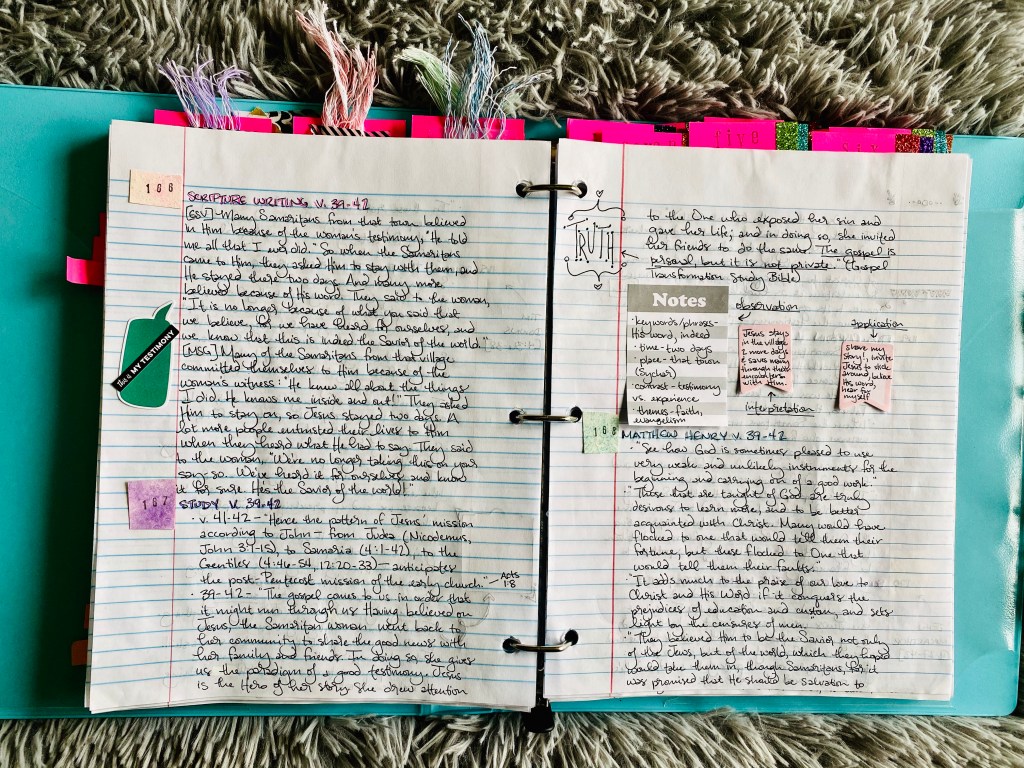 five
six
166
SCRIPTURE WRITING V. 39-42
[ESV] Many Samaritans from that town believed
in Him because of the woman's testimony, "He told
me all that I ever did." So when the Samaritans
came to Him, they asked Him to stay with them, and
He stayed there two days. And many more
believed because of His word. They said to the woman,
"It is no longer because of what you said that
we believe, for we have heard for ourselves, and
we know that this is indeed the Savior of the world."
[MSG] Many of the Samaritans from that village
committed themselves to Him because of the
woman's witness: "He knew all about the things
I did. He knows me inside and out!" They asked
Him to stay on, so Jesus stayed two days. A
lot more people entrusted their lives to Him
when they heard what He had to say. They said
to the woman, "We're no longer taking this on your
say-so. We've heard it for ourselves and know
it for sure. He's the Savior of the world!"
This is MY TESTIMONY
167
STUDY V. 39-42
· v. 41-42 - "Hence the pattern of Jesus' mission
according to John - from Judea (Nicodemus,
John 3:1-15), to Samaria (4:1-42), to the
Gentiles (4:46-54, 12:20-33) - anticipates
the post-Pentecost mission of the early church." - Acts 1:8
· 39-42 - "The gospel comes to us in order that
it might run through us. Having believed on
Jesus, the Samaritan woman went back to
her community to share the good news with
her family and friends. In doing so, she gives
us the paradigm of a good testimony. Jesus
is the Hero of her story. She drew attention
to the One who exposed her sin and
gave her life; and in doing so, she invited
her friends to do the same. The gospel is
personal, but it is not private." (Gospel
Transformation Study Bible)
TRUTH
Notes
· keywords/phrases -
His word, indeed
· time - two days
· place - that town
(Sychar)
· contrast - testimony
vs. experience
· themes - faith,
evangelism
observation
Jesus stays
in the village
2 more days
& saves many
through their
encounters
with Him.
interpretation
application
share my
story!, invite
Jesus to stick
around, believe
His word,
hear for
myself
168
MATTHEW HENRY V. 39-42
· "See how God is sometimes pleased to use
very weak and unlikely instruments for the
beginning and carrying on of a good work."
· "Those that are taught of God are truly
desirous to learn more, and to be better
acquainted with Christ. Many would have
flocked to one that would tell them their
fortune, but these flocked to One that
would tell them their faults."
· "It adds much to the praise of our love to
Christ and His Word if it conquers the
prejudices of education and custom, and sets
light by the censures of men."
· "They believed Him to be the Savior not only
of the Jews, but of the world, which they hoped
would take them in, though Samaritans, for it
was promised that He should be salvation to